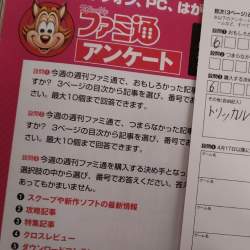 フォン、PC、はが
ファミ通
アンケート
設問1 今週の週刊ファミ通で、おもしろかった記
すか? 3ページの目次から記事を選び、番号で
さい。最大10個まで回答できます。
設問2 今週の週刊ファミ通で、つまらなかった記事
か? 3ページの目次から記事を選び、番号でお
最大10個まで回答できます。
設問3 今週の週刊ファミ通を購入する決め手となっ
択肢の中から選び、番号でお答えください。答え
あってもかまいません。
1 スクープや新作ソフトの最新情報
2 攻略記事
3 特集記事
4 クロスレビュー
5 ダウンロード
目次(3ページ)
設問1
6
設問3 購入する
6
その他:記述
トリッカル
設問4 4月17日以降
ゲーム名
ゲーム名
ゲーム名